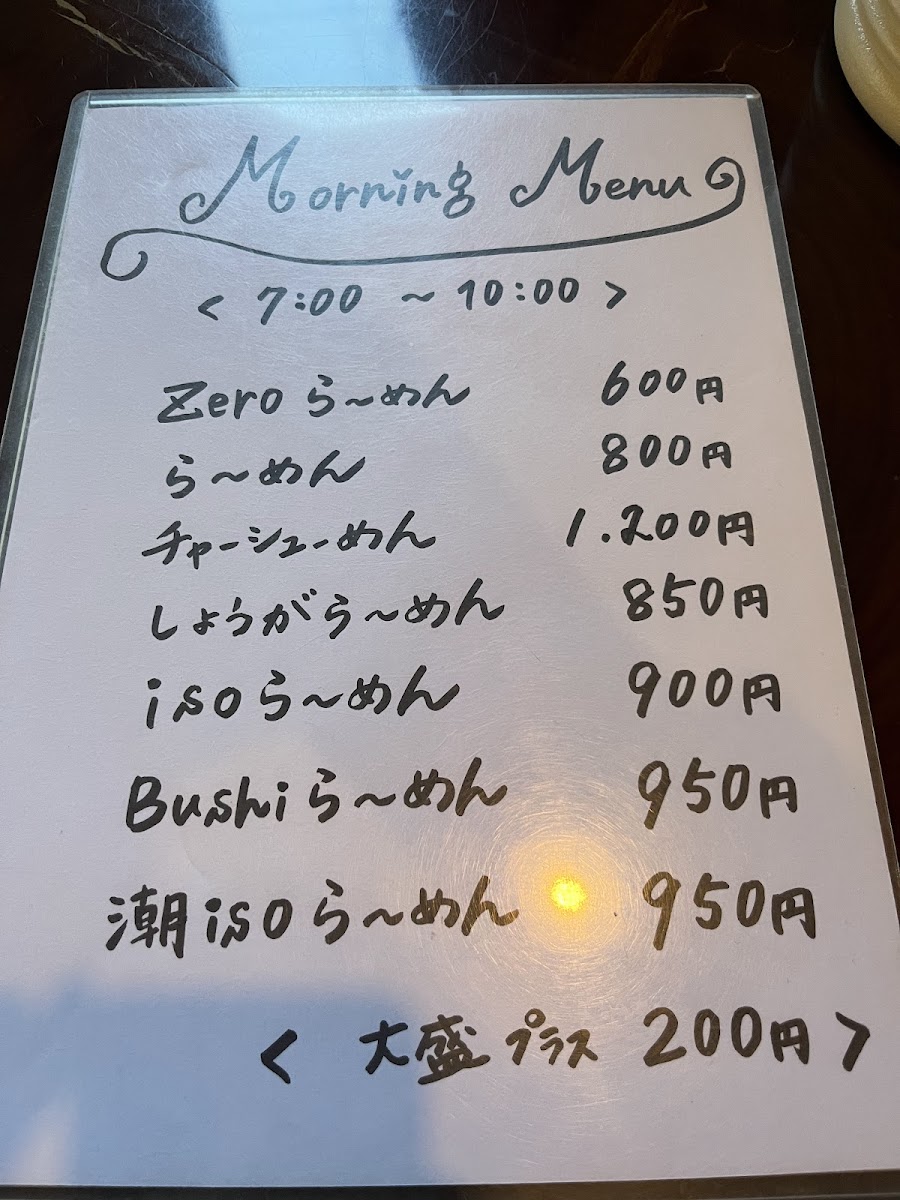 Morning Menu
< 7:00 ~ 10:00 >
Zero ら~めん 600円
ら~めん 800円
チャーシューめん 1.200円
しょうがら~めん 850円
isoら~めん 900円
Bushiら~めん 950円
潮isoら~めん 950円
< 大盛 プラス 200円 >